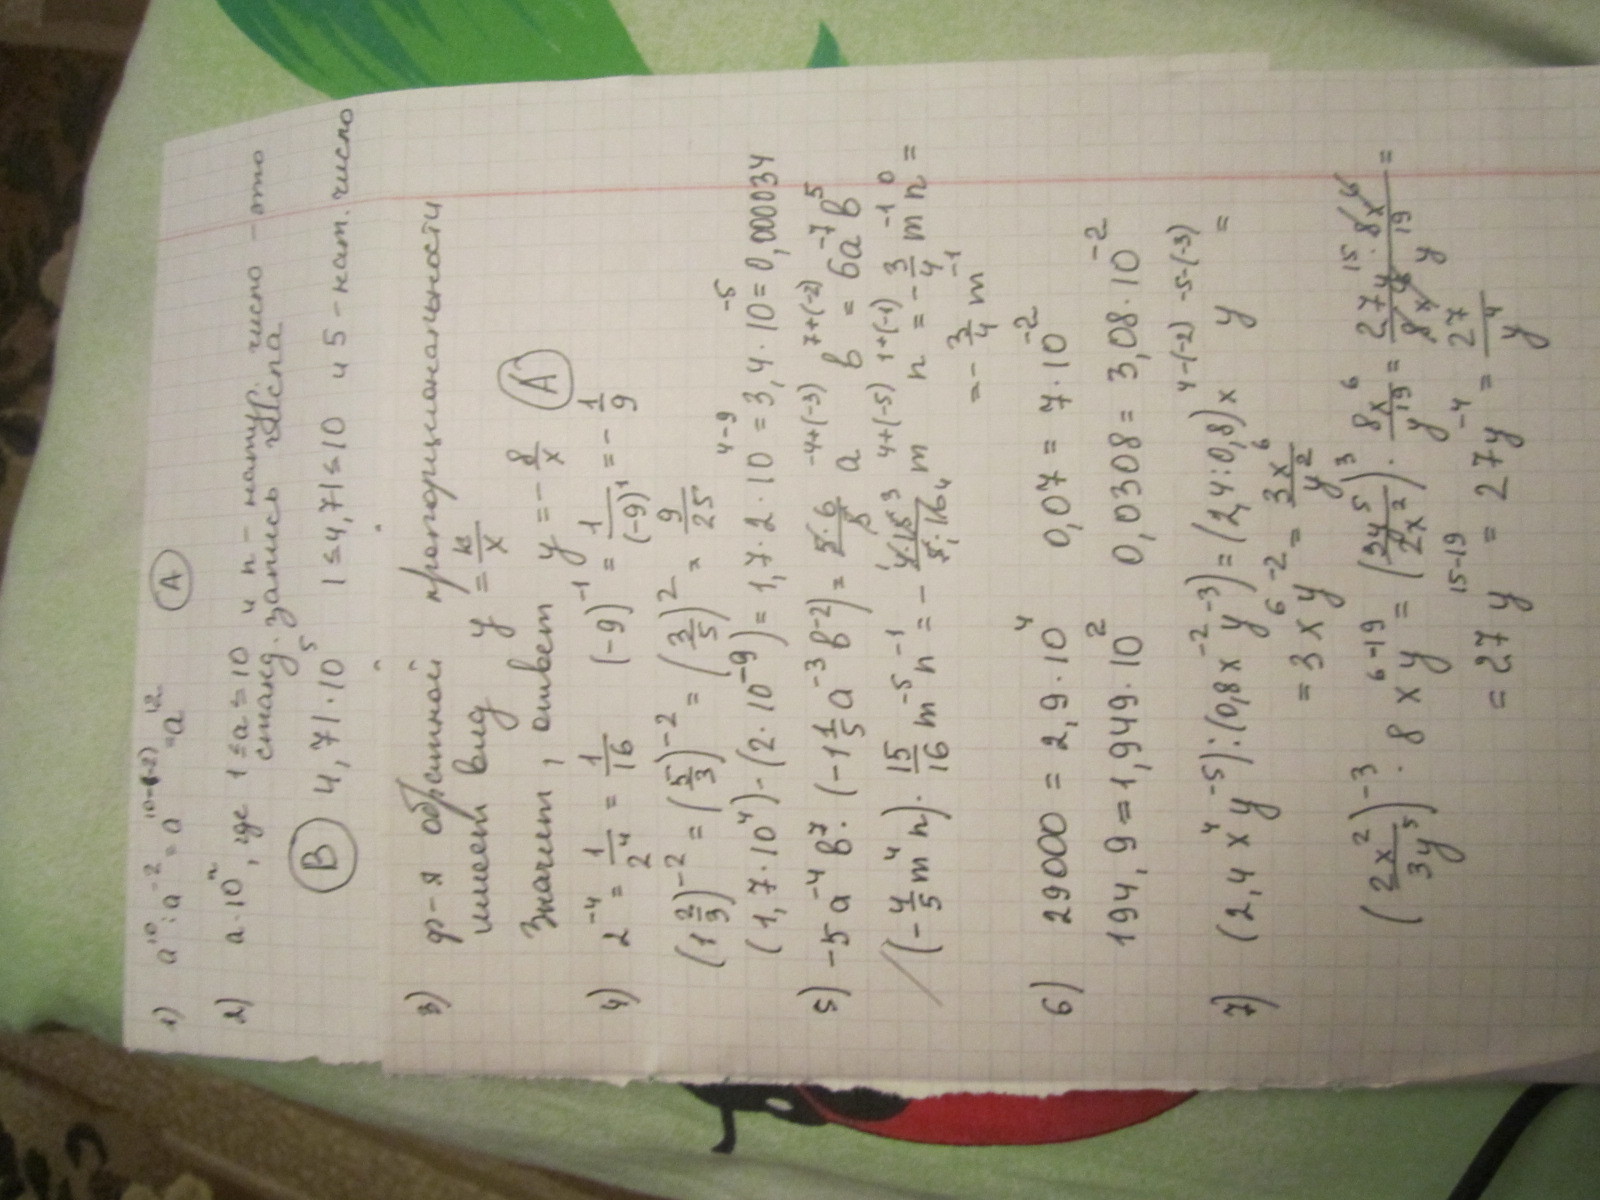 1) a¹⁰ : a⁻² = a¹⁰⁻⁽⁻²⁾ = a¹² (А)
2) a·10ⁿ, где 1 ≤ a ≤ 10 и n – натур. число – это
станд. запись числа
(В) 4,71·10⁵ 1 ≤ 4,71 ≤ 10 и 5 – нат. число
3) ф-я обратной пропорциональности
имеет вид y = к/x
Значит, ответ y = -8/x (А)
4) 2⁻⁴ = 1/2⁴ = 1/16 (-9)⁻¹ = 1/(-9)¹ = -1/9
(1 2/3)⁻² = (5/3)⁻² = (3/5)² = 9/25
(1,7·10⁴)·(2·10⁻⁹) = 1,7·2·10⁴⁻⁹ = 3,4·10⁻⁵ = 0,000034
5) -5a⁻⁴b⁷·(-1 1/5 a⁻³b⁻²) = 5·6/5 a⁻⁴⁺⁽⁻³⁾ b⁷⁺⁽⁻²⁾ = 6a⁻⁷b⁵
(-4/5 m⁴n)·15/16 m⁻⁵n⁻¹ = - 4·15/5·16 m⁴⁺⁽⁻⁵⁾ n¹⁺⁽⁻¹⁾ = -3/4 m⁻¹n⁰ =
= -3/4 m⁻¹
6) 29000 = 2,9·10⁴ 0,07 = 7·10⁻²
194,9 = 1,949·10² 0,0308 = 3,08·10⁻²
7) (2,4x⁴y⁻⁵) : (0,8x⁻²y⁻³) = (2,4:0,8)x⁴⁻⁽⁻²⁾ y⁻⁵⁻⁽⁻³⁾ =
= 3x⁶y⁻² = 3x⁶/y²
(2x²/3y⁵)⁻³ · 8x⁶y⁻¹⁹ = (3y⁵/2x²)³ · 8x⁶/y¹⁹ = 27y¹⁵·8x⁶/8x⁶y¹⁹ =
= 27y¹⁵⁻¹⁹ = 27y⁻⁴ = 27/y⁴